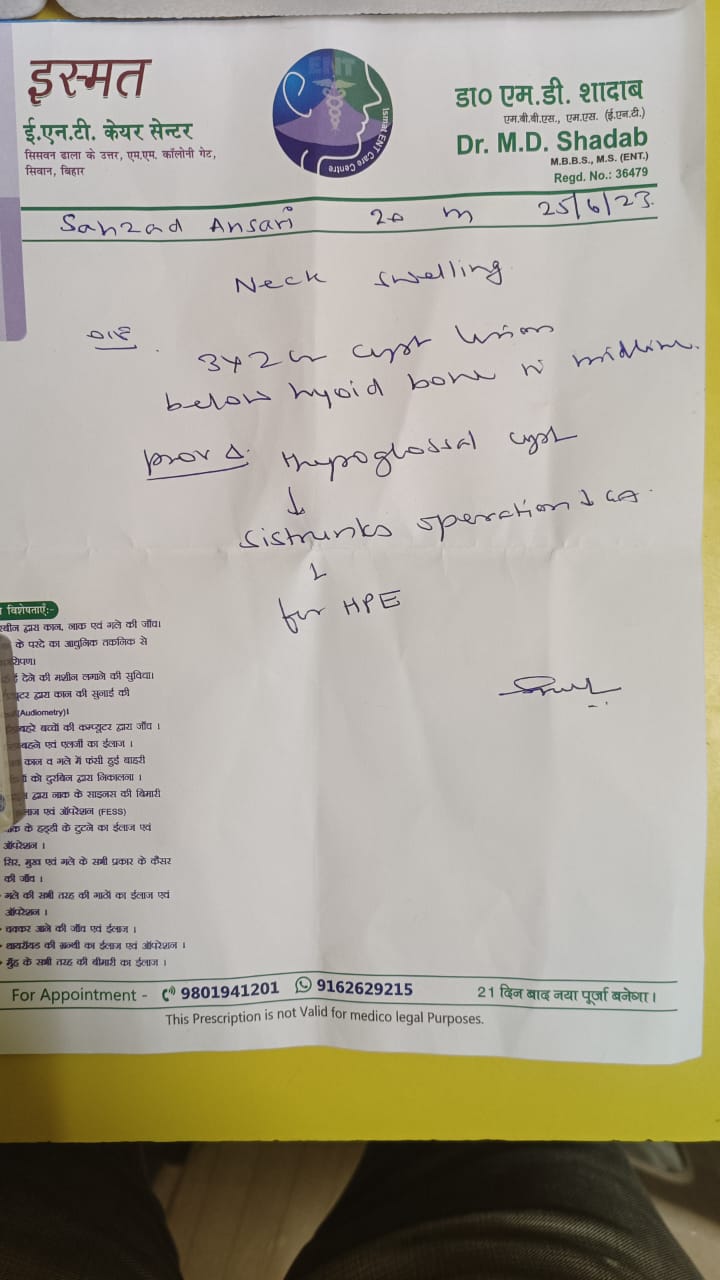 इस्मत
ई.एन.टी. केयर सेन्टर
सिसवन ढाला के उत्तर, एम.एम. कॉलोनी गेट,
सिवान, बिहार
ENT
Ismat ENT Care Centre
डा० एम.डी. शादाब
एम.बी.बी.एस., एम.एस. (ई.एन.टी.)
Dr. M.D. Shadab
M.B.B.S., M.S. (ENT.)
Regd. No.: 36479
Sahzad Ansari 20 m 25/6/23.
Neck swelling
O/E
3x2 cm cyst
below hyoid bone in midline.
prov Δ: thypoglossal cyst
↓
Sistrunks operation ↓ GA.
↓
for HPE
विशेषताएँ:-
द्वारा कान, नाक एवं गले की जाँच।
के परदे का आधुनिक तकनिक से
देने की मशीन लगाने की सुविधा।
द्वारा कान की सुनाई की
(Audiometry)।
बच्चों की कम्प्यूटर द्वारा जाँच ।
बहने एवं एलर्जी का ईलाज ।
कान व गले में फंसी हुई बाहरी
को दुरबिन द्वारा निकालना ।
द्वारा नाक के साइनस की बिमारी
एवं ऑपरेशन (FESS)
के हड्डी के टुटने का ईलाज एवं
ऑपरेशन ।
सिर, मुख एवं गले के सभी प्रकार के कैंसर
की जाँच ।
गले की सभी तरह की गाठों का ईलाज एवं
ऑपरेशन ।
चक्कर आने की जाँच एवं ईलाज ।
थायरॉयड की ग्रन्थी का ईलाज एवं ऑपरेशन ।
मुँह के सभी तरह की बीमारी का ईलाज ।
For Appointment - 9801941201 9162629215 21 दिन बाद नया पूर्जा बनेगा ।
This Prescription is not Valid for medico legal Purposes.